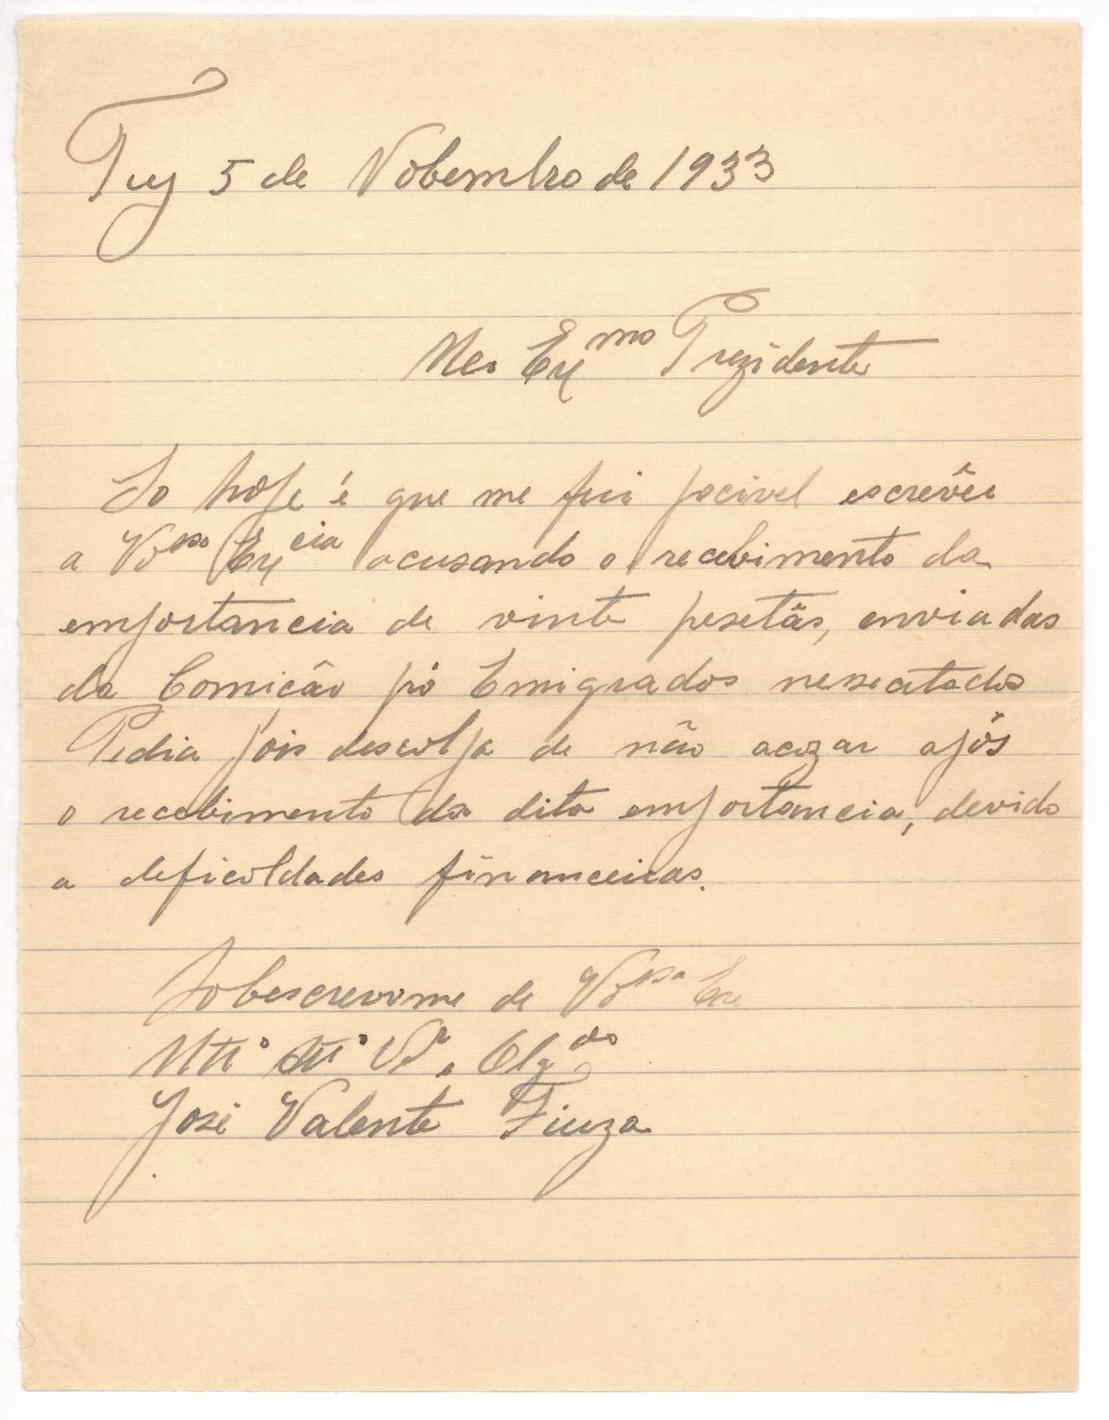 Tuy 5 de Nobembro de 1933
Meo Exmo Prezidente
So hoje é que me fui pocivel escrevêr
a Vosa Excia acusando o recebimento da
emportancia de vinte pesetâs, enviadas
da Comicão pó Emigrados nesecitados
Pedia pois descolpa de não acozar apôs
o recebimento da dita emportancia, devido
a deficoldades financeiras.
Sobescrevome de Vosa Exe
Mtº Mtº Vr. e Obgdo
José Valente Fiuza